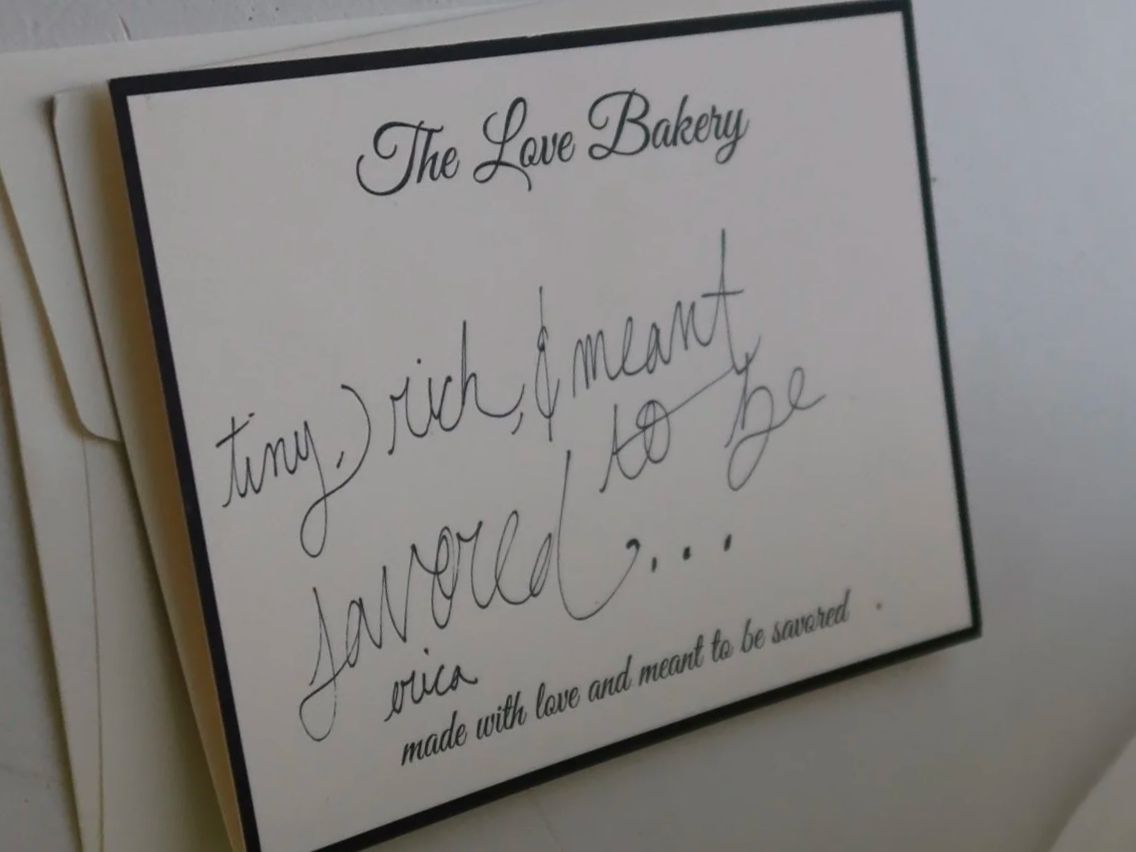 The Love Bakery
tiny, rich, & meant
to be
savored...
erica
made with love and meant to be savored